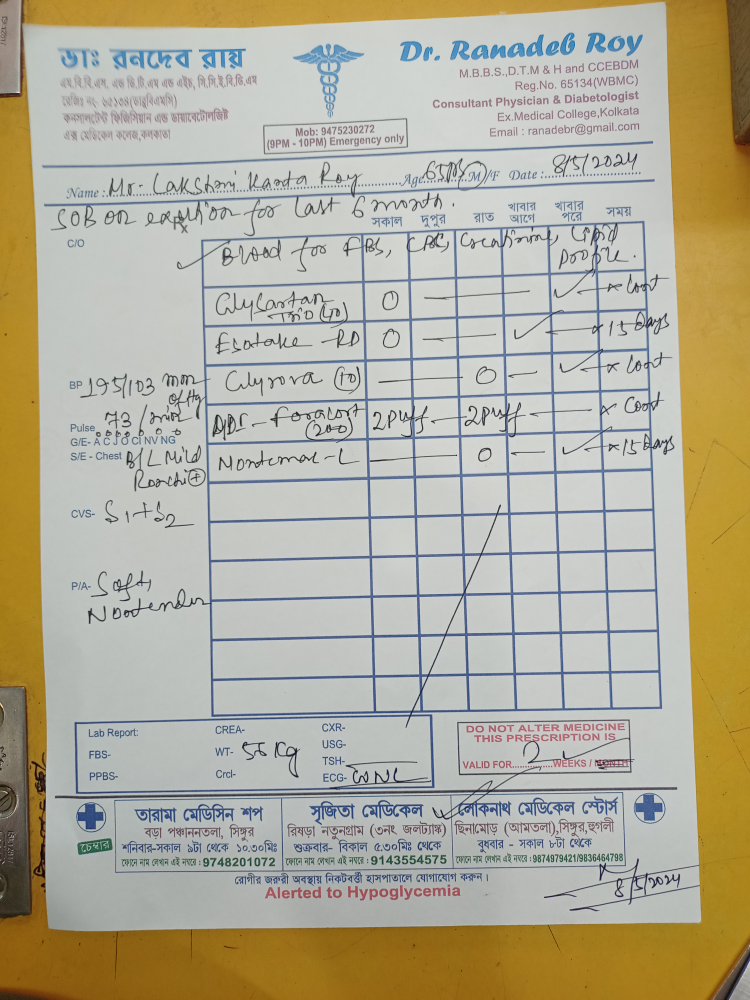 ডাঃ রনদেব রায়
এম.বি.বি.এস, এন্ড ডি.টি.এম এন্ড এইচ, সি.সি.ই.বি.ডি.এম
কনসালটেন্ট ফিজিসিয়ান এন্ড ডায়াবেটোলজিষ্ট
এক্স মেডিকেল কলেজ,কলকাতা
Mob: 9475230272
(9PM - 10PM) Emergency only
Dr. Ranadeb Roy
M.B.B.S.,D.T.M & H and CCEBDM
Reg.No. 65134(WBMC)
Consultant Physician & Diabetologist
Ex.Medical College,Kolkata
Email : ranadebr@gmail.com
Name : Mr. Lakshmi Kanta Roy Age 65yrs M/F Date : 8/5/2024
SOB on exertion for last 6 month.
C/O
Rx
সকাল দুপুর রাত খাবার আগে খাবার পরে সময়
Blood for FBS, CBC, Creatinine, Lipid Profile.
Glysartan Trio (40) 0 — ✓ — x Cont
Esotake - RD 0 — ✓ — x 15 Days
BP 195/103 mm of Hg
Glyrova (10) — 0 — ✓ x Cont
Pulse 73/min
G/E- A C J O Cl NV NG
MDI - Foracort (200) 2 puff — 2 puff — x Cont
S/E - Chest B/L Mild Ronchi (+)
Montemac - L — 0 — ✓ x 15 Days
CVS- S1+S2
P/A- Soft, Nontender
Lab Report:
FBS-
PPBS-
CREA-
WT- 55 Kg
Crcl-
CXR-
USG-
TSH-
ECG- WNL
DO NOT ALTER MEDICINE
THIS PRESCRIPTION IS
VALID FOR 2 WEEKS / MONTH
চেম্বার
তারামা মেডিসিন শপ
বড়া পঞ্চাননতলা, সিঙ্গুর
শনিবার-সকাল ৯টা থেকে ১০.৩০মিঃ
ফোনে নাম লেখান এই নম্বরে : 9748201072
সৃজিতা মেডিকেল
রিষড়া নতুনগ্রাম (৩নং জলট্যাঙ্ক)
শুক্রবার- বিকাল ৫.৩০মিঃ থেকে
ফোনে নাম লেখান এই নম্বরে : 9143554575
লোকনাথ মেডিকেল স্টোর্স
ছিনামোড় (আমতলা),সিঙ্গুর,হুগলী
বুধবার - সকাল ৮টা থেকে
ফোনে নাম লেখান এই নম্বরে : 9874979421/9836464798
রোগীর জরুরী অবস্থায় নিকটবর্তী হাসপাতালে যোগাযোগ করুন।
Alerted to Hypoglycemia
8/5/2024